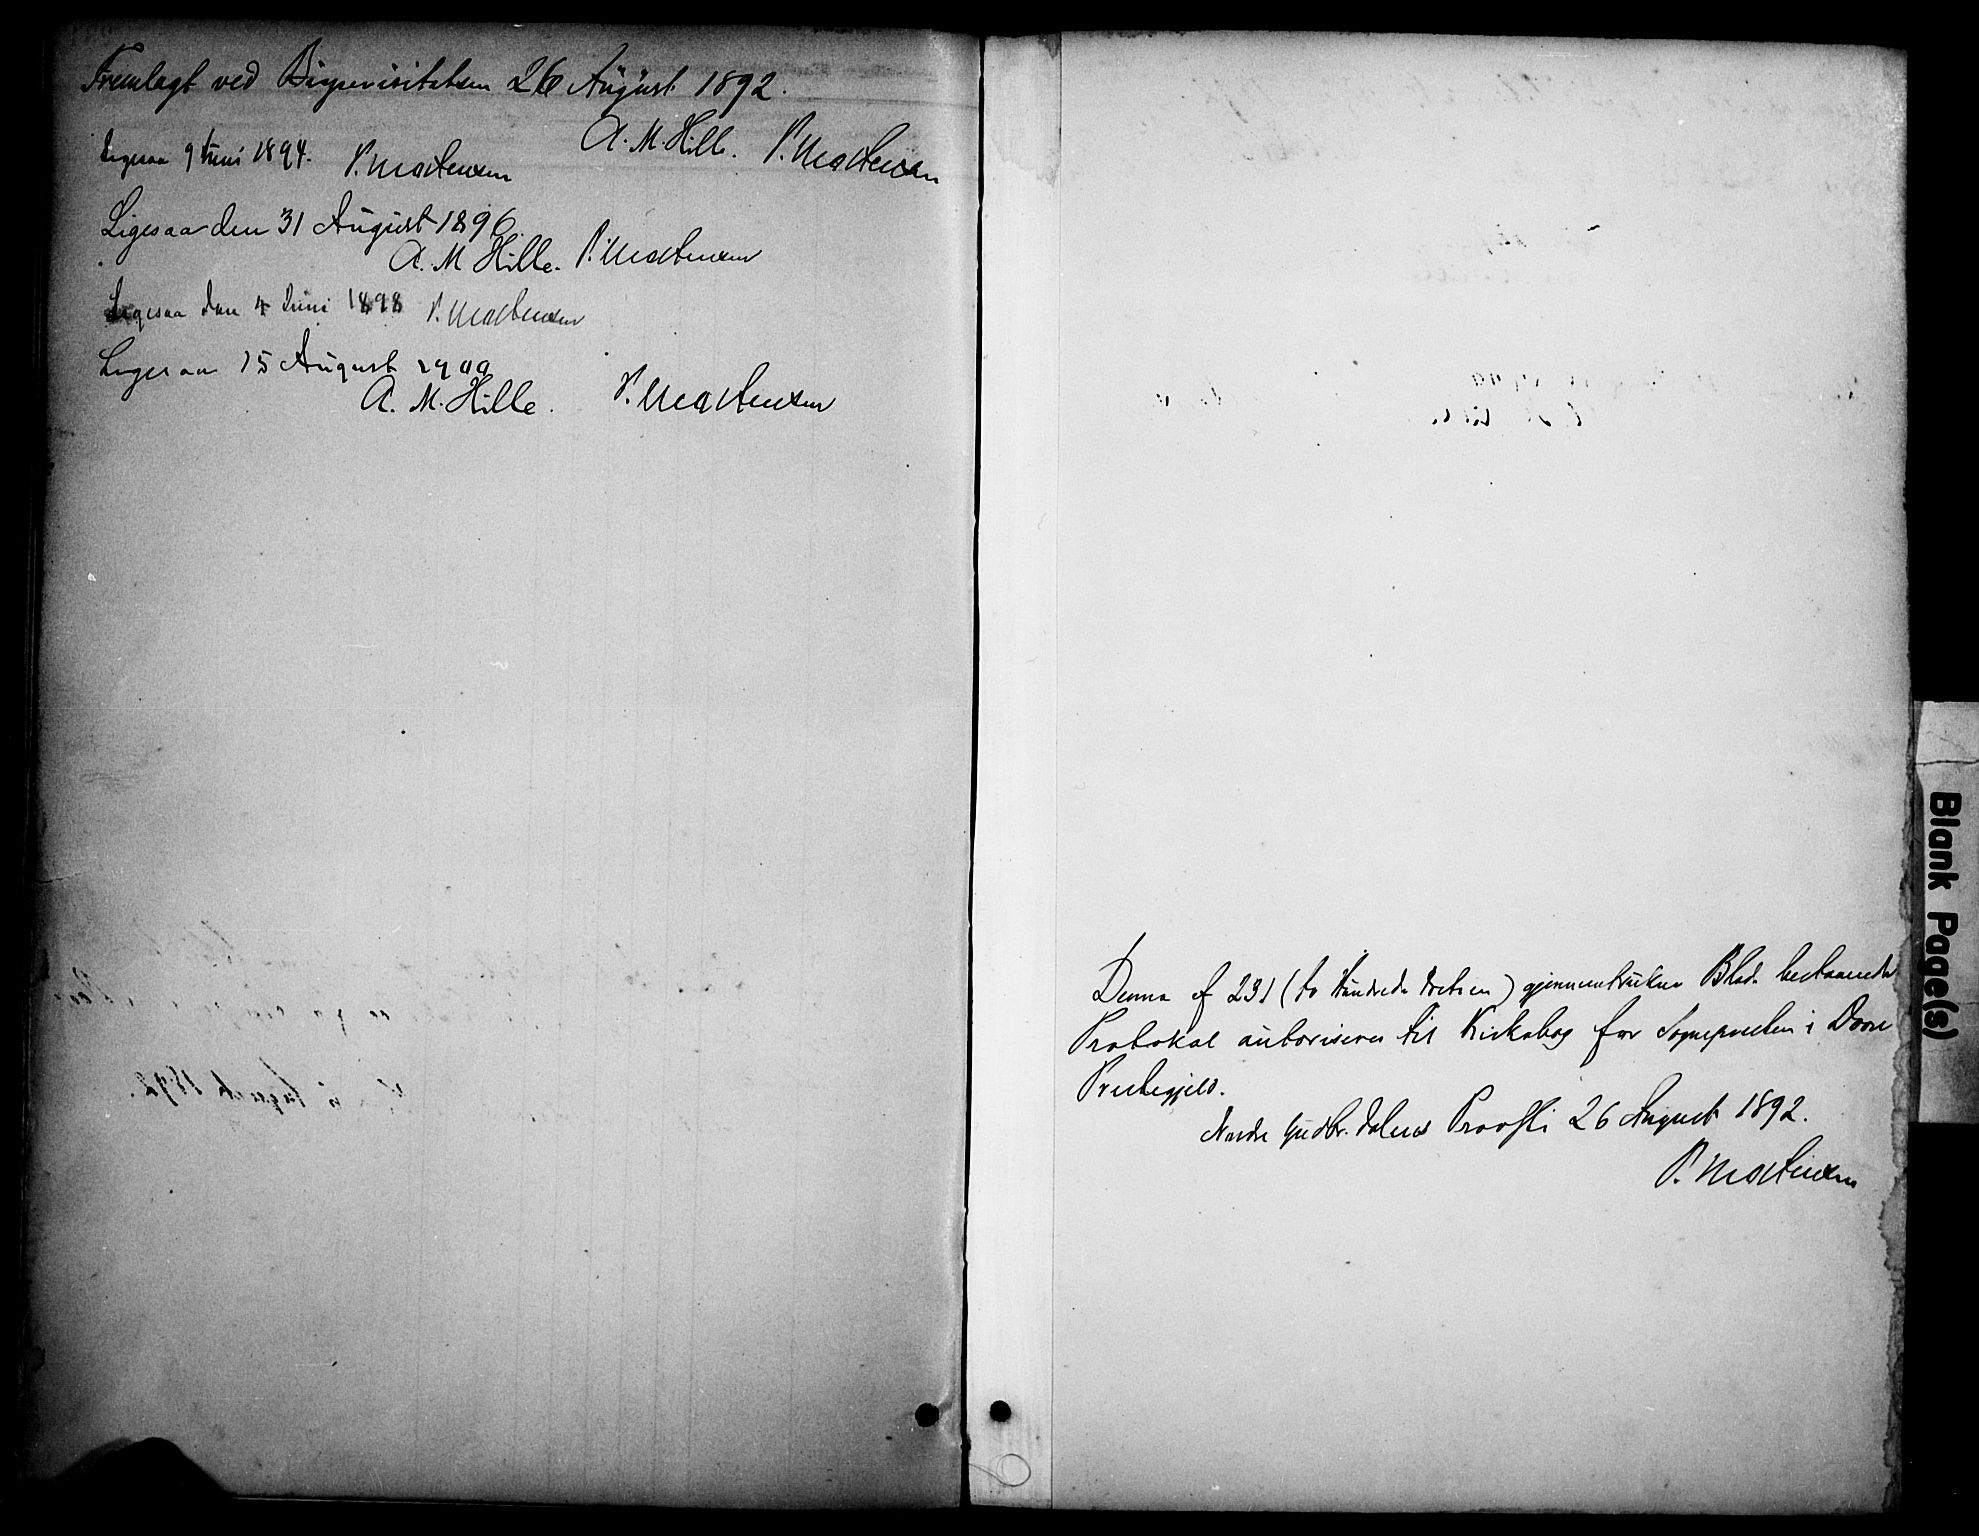 Fremlagt ved Bispevisitatsen 26 August 1892.
A. M. Hille. P. Mortensen
Ligesaa 9 Juni 1894. P. Mortensen
Ligesaa den 31 August 1896.
A. M Hille. P. Mortensen
Ligesaa den 4 Juni 1898 P. Mortensen
Ligesaa 15 August 1900
A. M. Hille. P. Mortensen
Denne af 231 (to Hundrede Tretien) gjennemtrukne Blade bestaaende
Protokol autoriseres til Kirkebog for Sognepresten i Dovre
Prestegjeld.
Nordre Gudbr. dalens Provsti 26 August 1892.
P. Mortensen
Blank Page(s)